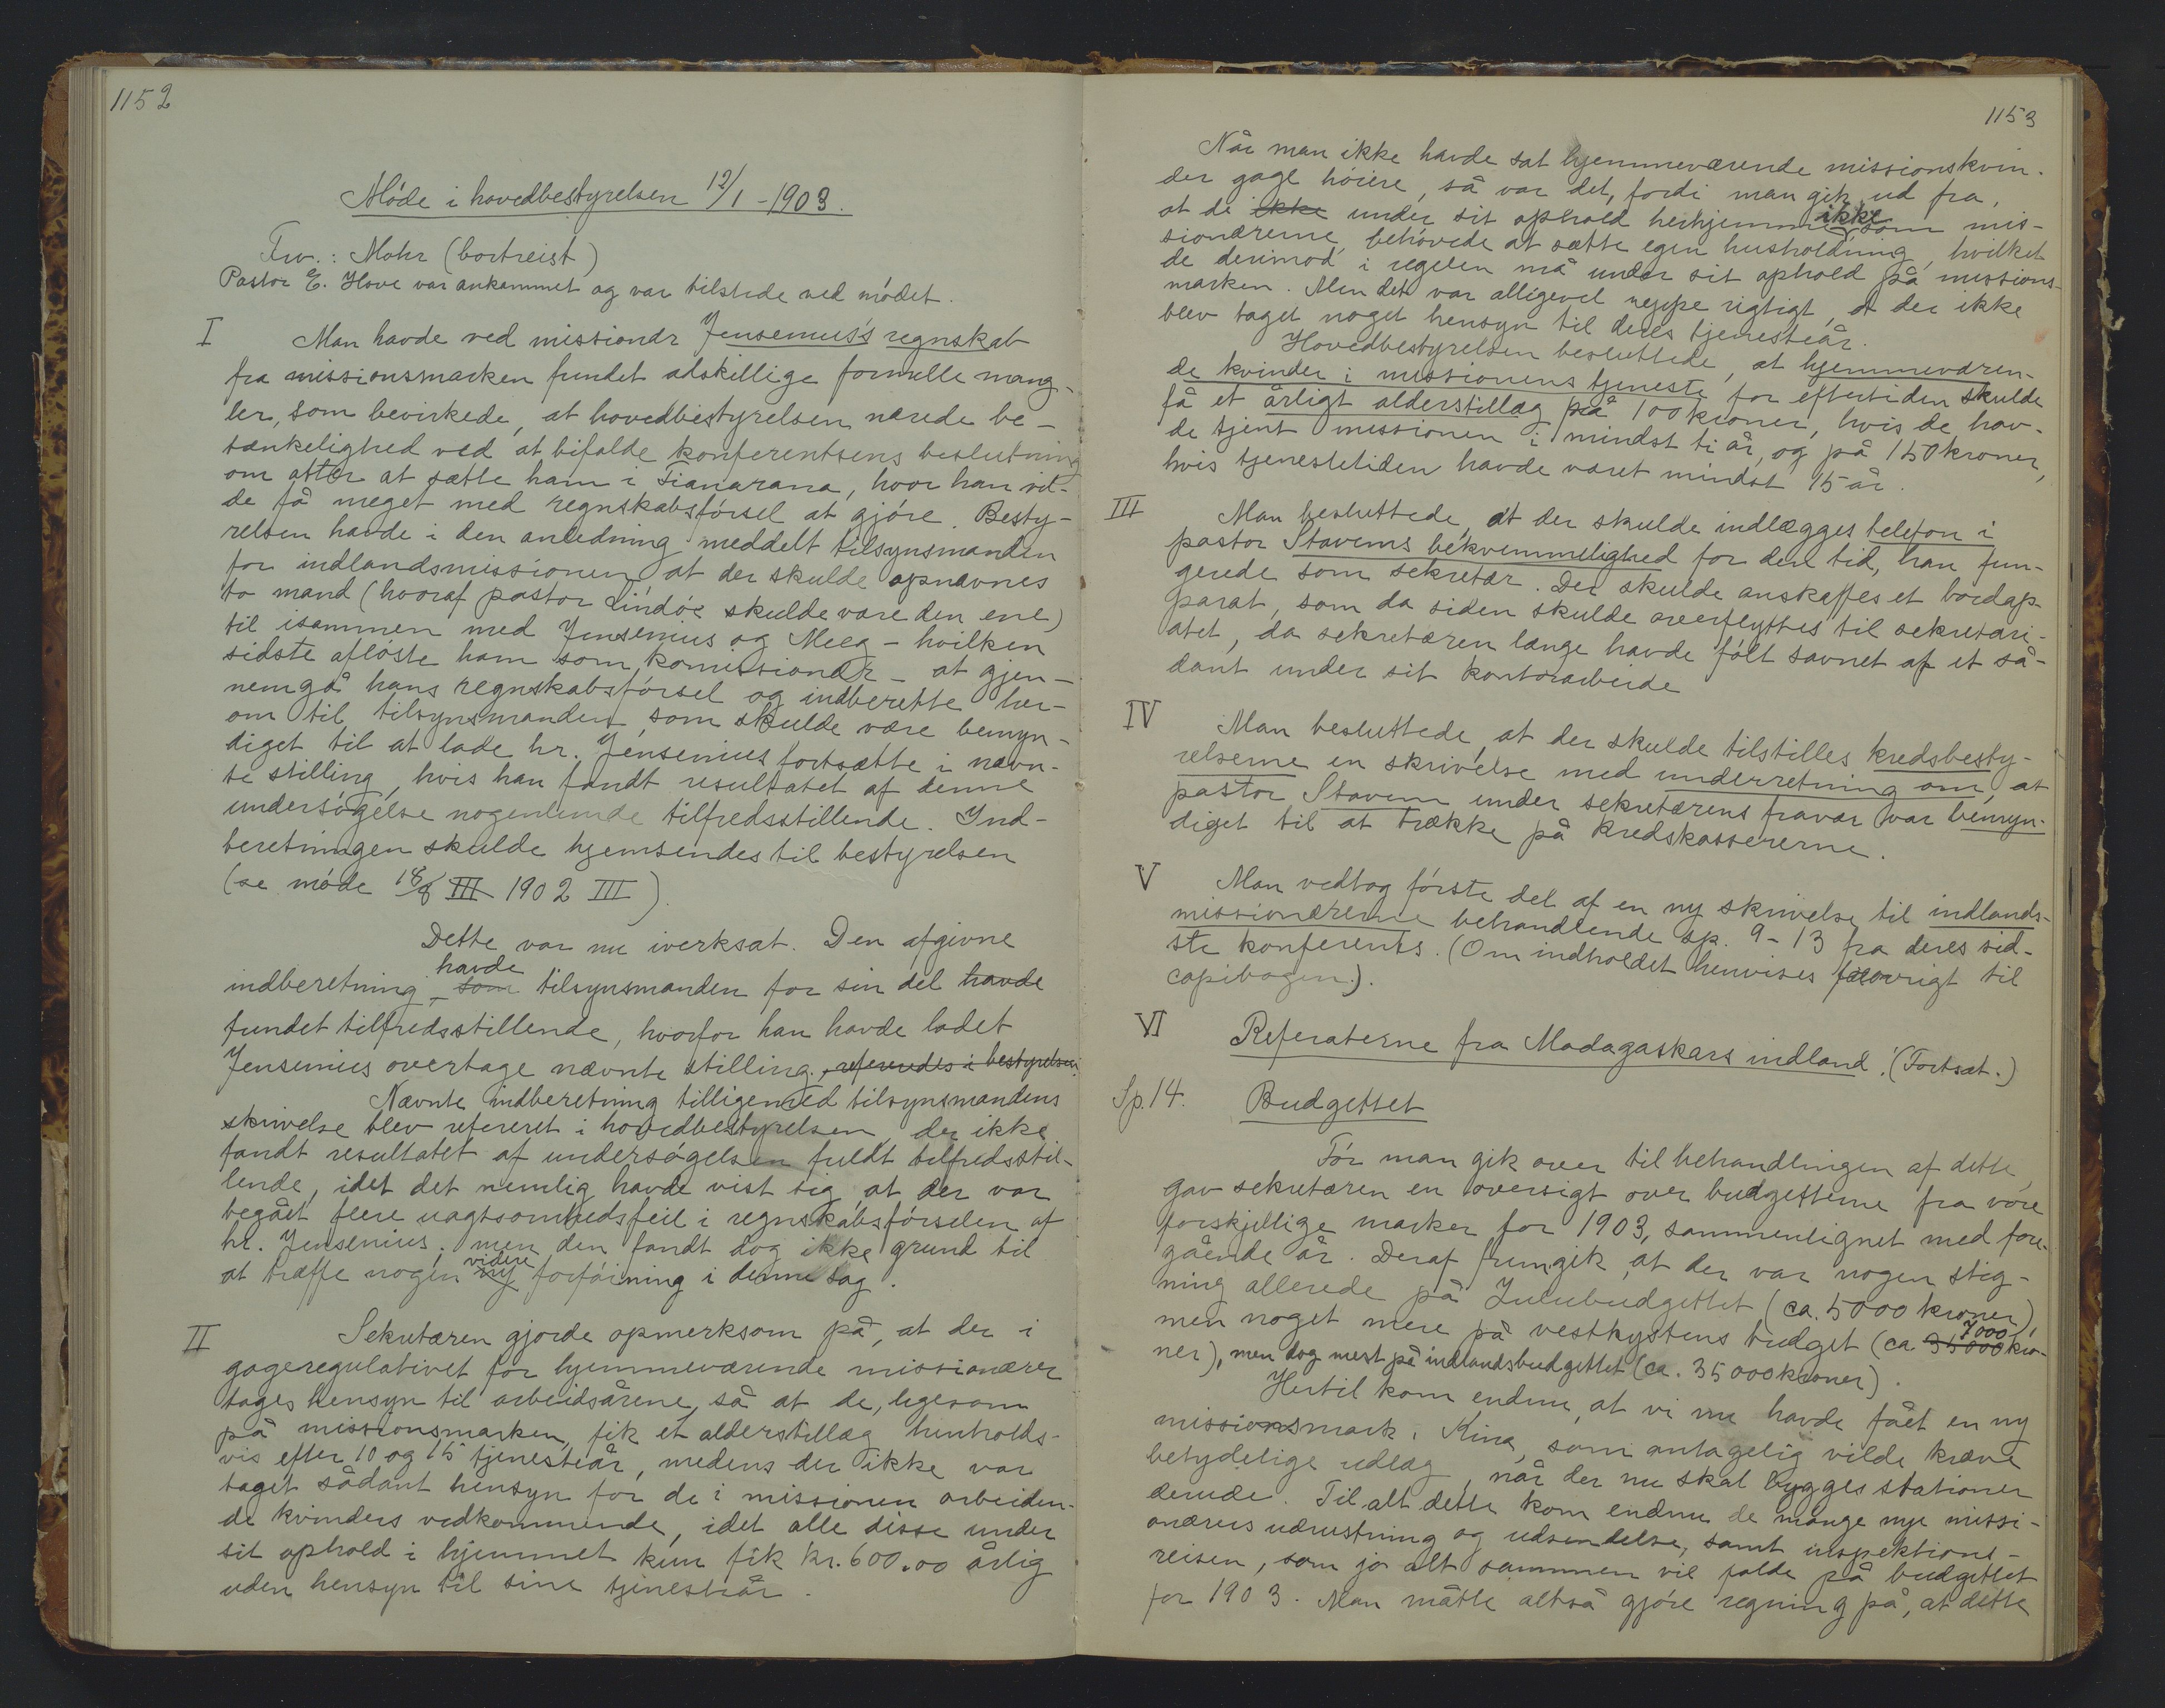 1152
Møde i hovedbestyrelsen 12/1 - 1903.
Frv.: Mohr (bortreist)
Pastor E. Hove var ankommet og var tilstede ved mødet.
I Man havde ved missionær Jensenius's regnskab
fra missionsmarken fundet adskillige formelle mang-
ler, som bevirkede, at hovedbestyrelsen nærede be-
tænkelighed ved at bifalde konferentsens beslutning
om atter at sætte ham i Fianarana, hvor han vil-
de få meget med regnskabsførsel at gjøre. Besty-
relsen havde i den anledning meddelt tilsynsmanden
for indlandsmissionen, at der skulde opnævnes
to mænd (hvoraf pastor Lindøe skulde være den ene)
til isammen med Jensenius og Meeg - hvilken
sidste afløste ham som komissionær - at gjen-
nemgå hans regnskabsførsel og indberette her-
om til tilsynsmanden, som skulde være bemyn-
diget til at lade hr. Jensenius fortsætte i nævn-
te stilling, hvis han fandt resultatet af denne
undersøgelse nogenlunde tilfredsstillende. Ind-
beretningen skulde hjemsendes til bestyrelsen
(se møde 18/8 III 1902 III).
Dette var nu iverksat. Den afgivne
indberetning, som havde tilsynsmanden for sin del havde
fundet tilfredsstillende, hvorfor han havde ladet
Jensenius overtage nævnte stilling, refereredes i bestyrelsen.
Nævnte indberetning tilligemed tilsynsmandens
skrivelse blev refereret i hovedbestyrelsen, der ikke
fandt resultatet af undersøgelsen fuldt tilfredsstil-
lende, idet det nemlig havde vist sig, at der var
begået flere uagtsomhedsfeil i regnskabsførselen af
hr. Jensenius; men den fandt dog ikke grund til
at træffe nogen ny videre forføining i denne sag.
II Sekretæren gjorde opmerksom på, at der i
gageregulativet for hjemmeværende missionærer
tages hensyn til arbeidsårene, så at de, ligesom
på missionsmarken, fik et alderstillæg henholds-
vis efter 10 og 15 tjenesteår, medens der ikke var
taget sådant hensyn for de i missionen arbeiden-
de kvinders vedkommende, idet alle disse under
sit ophold i hjemmet kun fik kr. 600.00 årlig
uden hensyn til sine tjenesteår.
1153
Når man ikke havde sat hjemmeværende missionskvin-
der gage høiere, så var det, fordi man gik ud fra,
at de ikke under sit ophold herhjemme ikke som mis-
sionærerne behøvede at sætte egen husholdning, hvilket
de derimod i regelen må under sit ophold på missions-
marken. Men det var alligevel neppe rigtigt, at der ikke
blev taget noget hensyn til deres tjenesteår.
Hovedbestyrelsen besluttede, at hjemmeværen-
de kvinder i missionens tjeneste for eftertiden skulde
få et årligt alderstillæg på 100 kroner, hvis de hav-
de tjent missionen i mindst ti år, og på 150 kroner,
hvis tjenestetiden havde været mindst 15 år.
III Man besluttede, at der skulde indlægges telefon i
pastor Stavems bekvemmelighed for den tid, han fun-
gerede som sekretær. Der skulde anskaffes et bordap-
parat, som da siden skulde overflyttes til sekretari-
atet, da sekretæren længe havde følt savnet af et så-
dant under sit kontorarbeide
IV Man besluttede, at der skulde tilstilles kredsbesty-
relserne en skrivelse med underretning om, at
pastor Stavem under sekretærens fravær var bemyn-
diget til at trække på kredskassererne.
V Man vedtog første del af en ny skrivelse til indlands-
missionærerne behandlende sp. 9-13 fra deres sid-
ste konferents. (Om indholdet henvises forøvrigt til
copibogen.).
VI Referaterne fra Madagaskars indland. (Fortsat.)
Sp. 14. Budgettet
Før man gik over til behandlingen af dette,
gav sekretæren en oversigt over budgetterne fra vore
forskjellige marker for 1903, sammenlignet med fore-
gående år. Deraf fremgik, at der var nogen stig-
ning allerede på Zulubudgettet (ca. 5000 kroner),
men noget mere på vestkystens budget (ca 35000 7000 kro-
ner), men dog mest på indlandsbudgettet (ca. 35000 kroner).
Hertil kom endnu, at vi nu havde fået en ny
missionsmark, Kina, som antagelig vilde kræve
betydelige udlæg, når der nu skal bygges stationer
derude. Til alt dette kom endnu de mange nye missi-
onærers udrustning og udsendelse, samt inspektions-
reisen, som jo alt sammen vil falde på budgettet
for 1903. Man måtte altså gjøre regning på, at dette